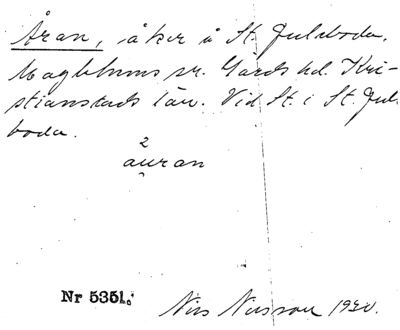 Åran, åker å St. Juleboda.
Maglehems sn. Gärds hd. Kri-
stianstads län. Vid St. i St. Jule-
boda.
2
auran
Nr 5351.
Nils Nilsson 1930.